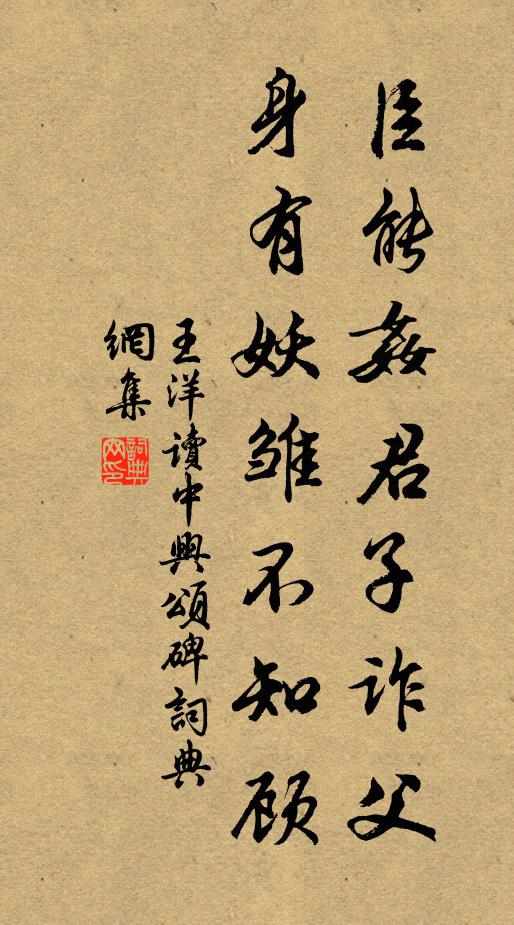 臣能姦君子诈父
身有妖雏不知顾
王洋讀中興頌碑詞典
網集
詞典
网印